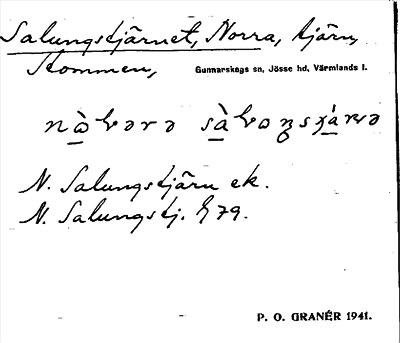 Salungstjärnet, Norra, tjärn,
Kommen, Gunnarskogs sn, Jösse hd, Värmlands l.
N. Salungstjärn ek.
N. Salungstj. G 79.
P. O. GRANÉR 1941.